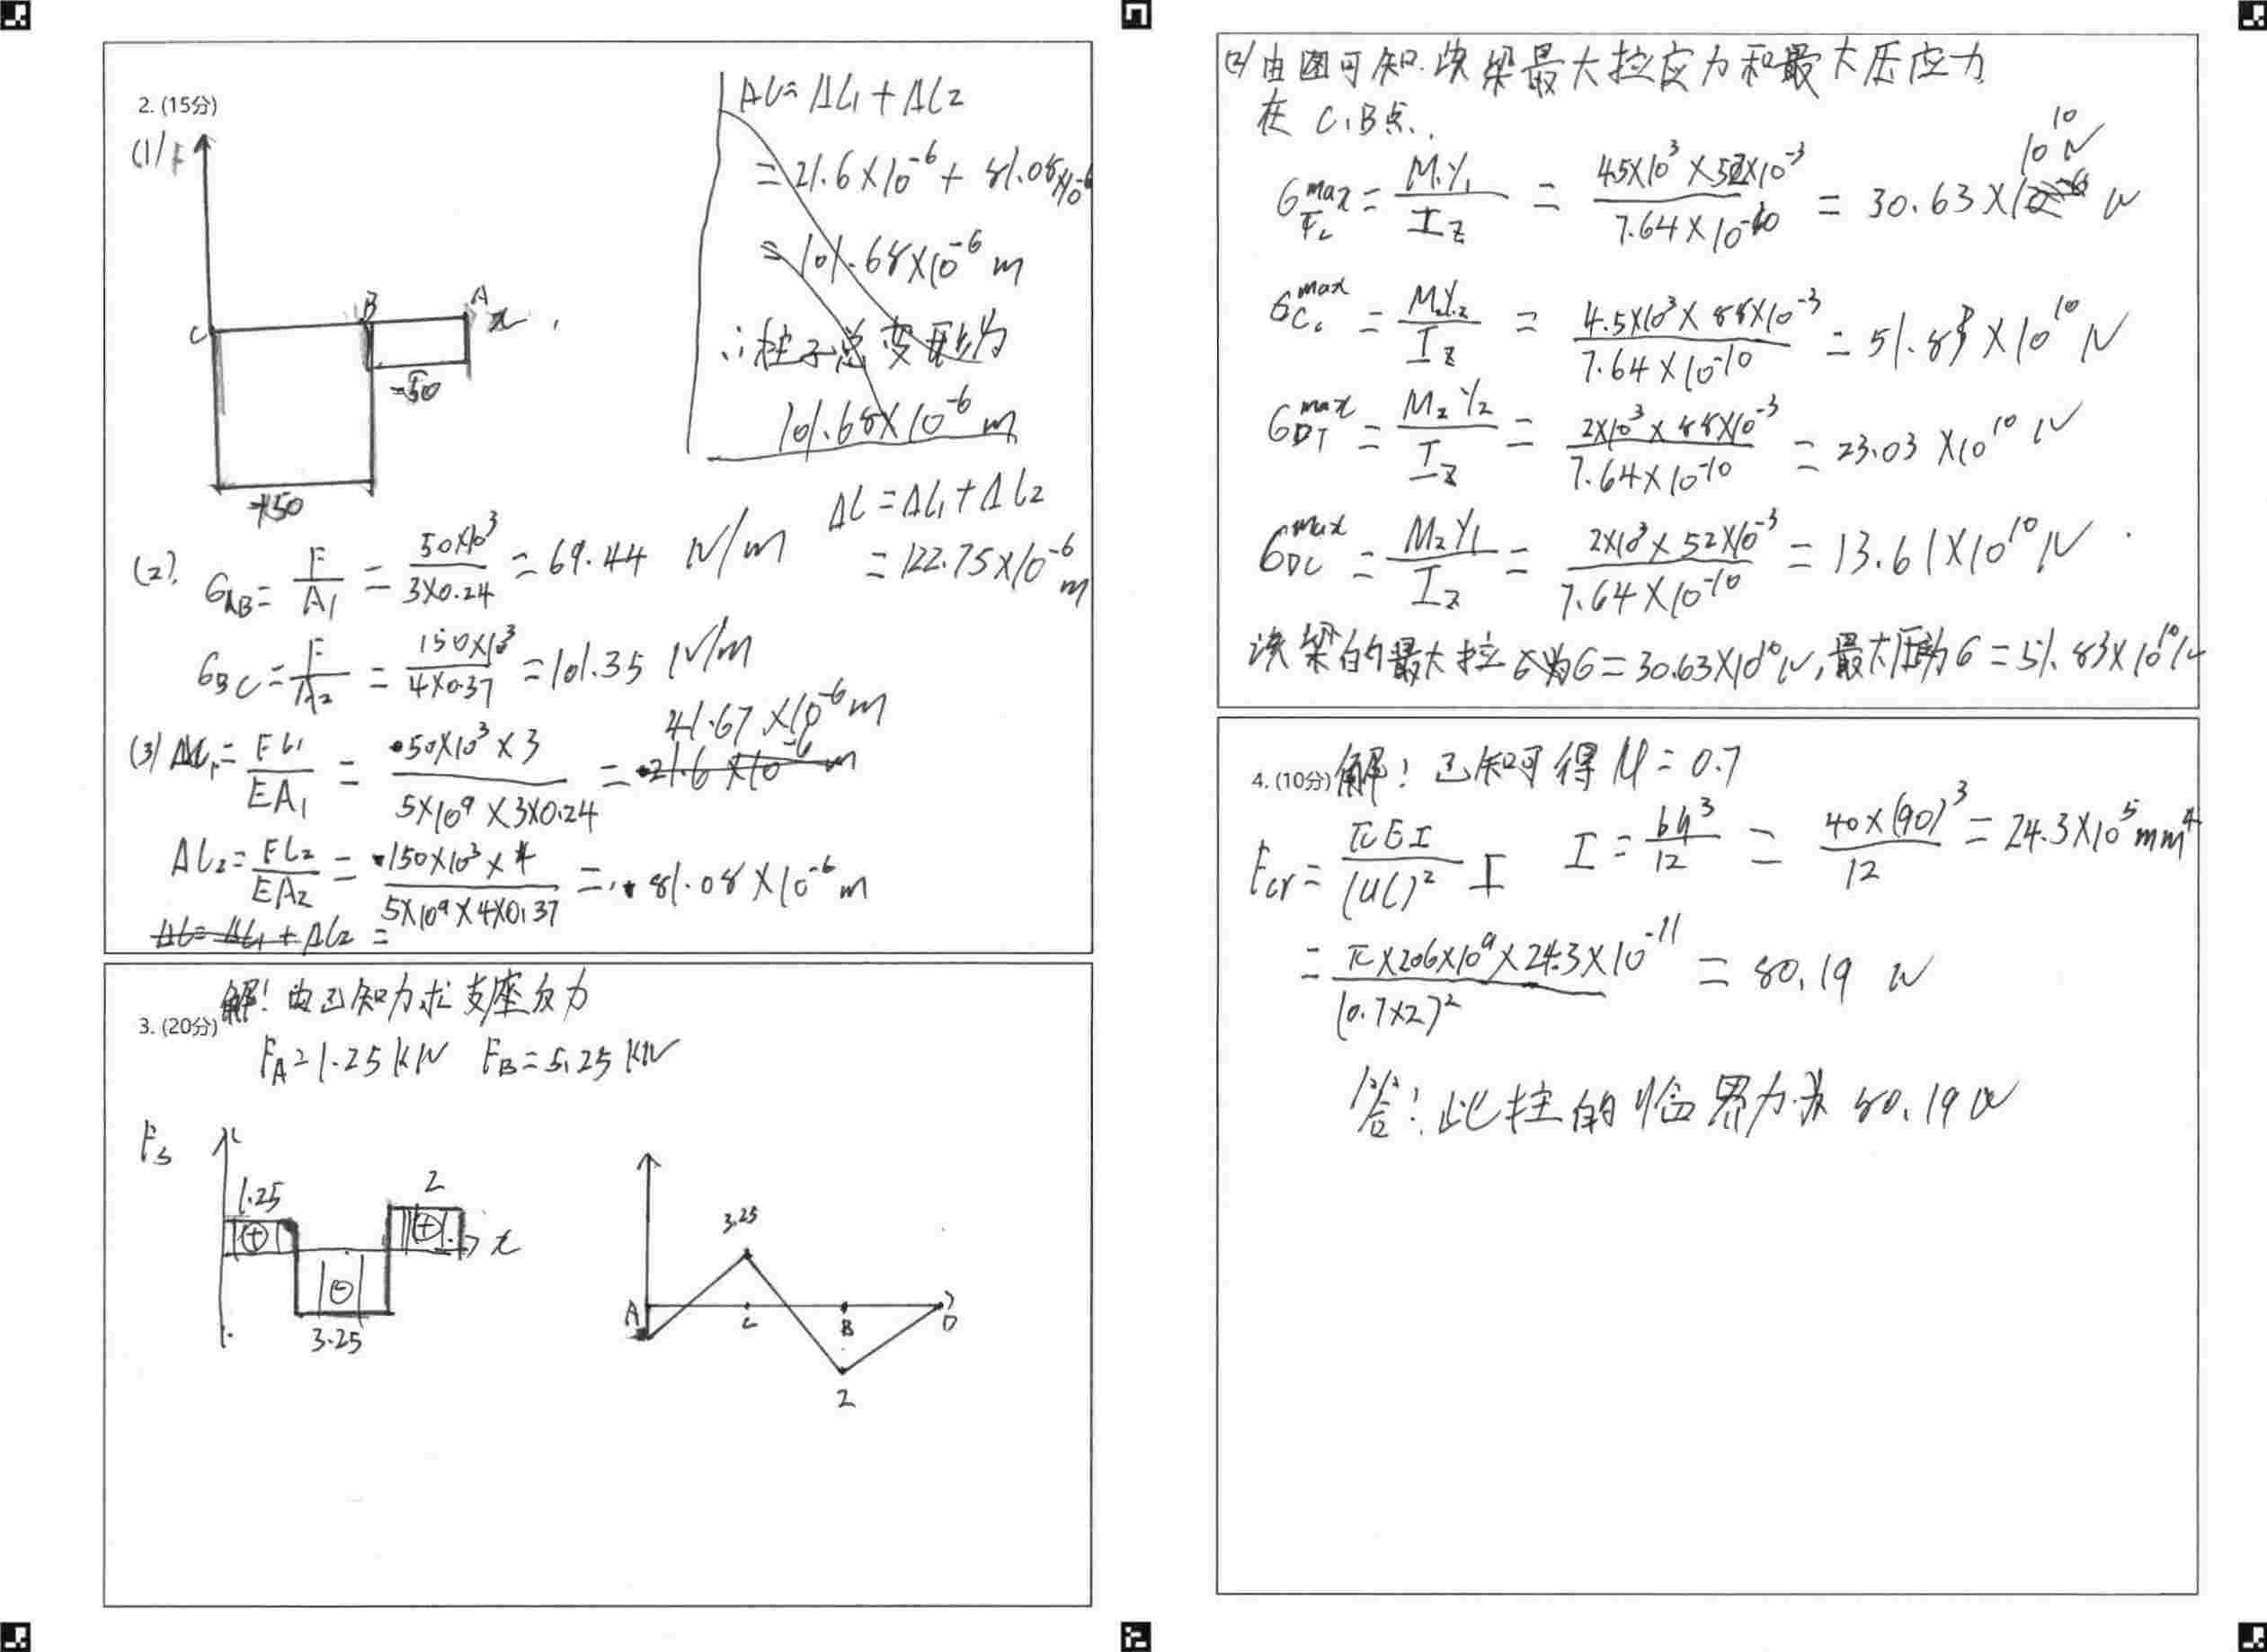 2. (15分)
(1) F
C
B
A
x
-50
-150
Δl=Δl₁+Δl₂
=21.6×10⁻⁶+81.08×10⁻⁶
=101.68×10⁻⁶ m
∴柱子总变形为
101.68×10⁻⁶ m
(2). σAB=F/A₁=50×10³/3×0.24=69.44 N/m
σBC=F/A₂=150×10³/4×0.37=101.35 N/m
Δl=Δl₁+Δl₂
=122.75×10⁻⁶ m
(3) Δl₁=Fl₁/EA₁=50×10³×3/5×10⁹×3×0.24=21.6×10⁻⁶ m
41.67×10⁻⁶ m
Δl₂=Fl₂/EA₂=150×10³×4/5×10⁹×4×0.37=81.08×10⁻⁶ m
Δl=Δl₁+Δl₂=
3. (20分)
解：由已知力求支座反力
FA=1.25kN FB=5.25kN
Fs
1.25
2
⊕
⊕
x
⊖
3.25
3.25
A
C
B
D
2
(2)由图可知.该梁最大拉应力和最大压应力
在C,B点.
max=M₁y₁/Iz=4.5×10³×52×10⁻³/7.64×10⁻¹⁰=30.63×10¹⁰ N
σCc max=M₁y₂/Iz=4.5×10³×88×10⁻³/7.64×10⁻¹⁰=51.83×10¹⁰ N
σDT max=M₂y₂/Iz=2×10³×88×10⁻³/7.64×10⁻¹⁰=23.03×10¹⁰ N
σDC max=M₂y₁/Iz=2×10³×52×10⁻³/7.64×10⁻¹⁰=13.61×10¹⁰ N
该梁的最大拉为σ=30.63×10¹⁰N,最大压为σ=51.83×10¹⁰N
4. (10分)
解：已知可得μ=0.7
Fcr=πEI/(μl)² I I=bh³/12=40×(90)³/12=24.3×10⁵mm⁴
=π×206×10⁹×24.3×10⁻¹¹/(0.7×2)²=80.19 N
答：此拄的临界力为80.19N